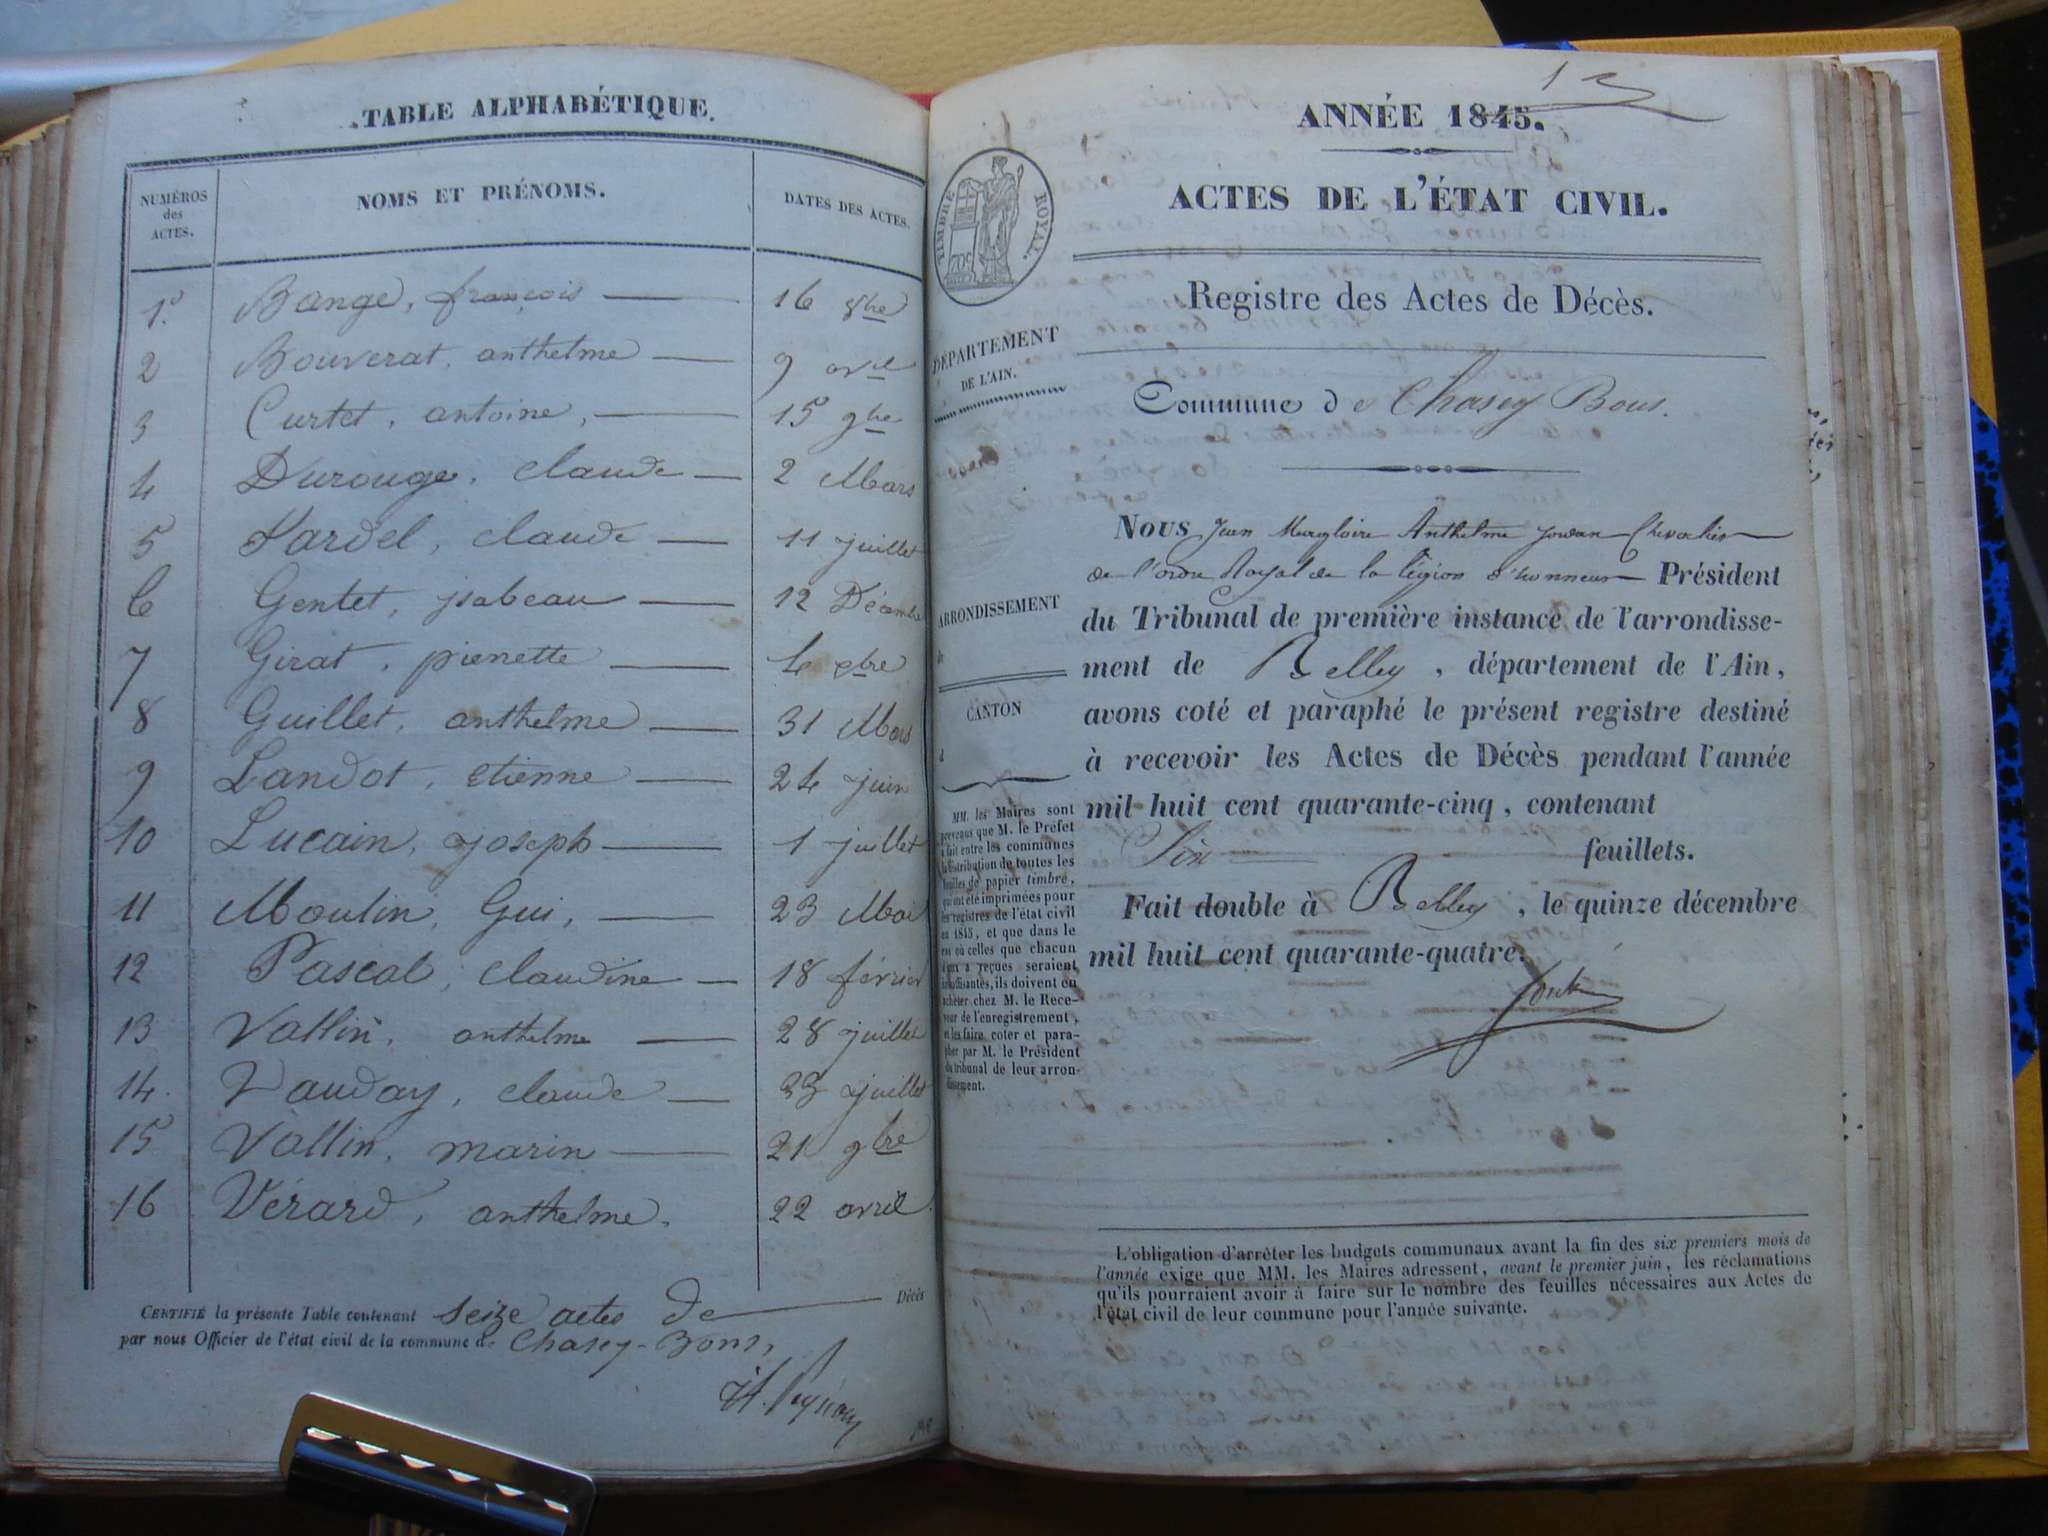 TABLE ALPHABÉTIQUE.
NUMÉROS des ACTES. NOMS ET PRÉNOMS. DATES DES ACTES.
1. Bange, françois 16 8bre
2 Bouverat, anthelme 9 avril
3 Curtet, antoine, 15 9bre
4 Durouge, claude 2 Mars
5 Fardel, claude 11 juillet
6 Gentet, isabeau 12 Décembre
7 Girat, pierrette 4 xbre
8 Guillet, anthelme 31 Mars
9 Landot, etienne 24 juin
10 Lucain, joseph 1 juillet
11 Moulin, Gui, 23 Mai
12 Pascal, claudine 18 février
13 Vallin, anthelme 28 juillet
14. Vauday, claude 23 juillet
15 Vallin, marin 21 9bre
16 Vérard, anthelme. 22 avril.
CERTIFIÉ la présente Table contenant seize actes de Décès
par nous Officier de l'état civil de la commune de Chasey-Bons,
ANNÉE 1845.
ACTES DE L'ÉTAT CIVIL.
TIMBRE ROYAL.
Registre des Actes de Décès.
DÉPARTEMENT
DE L'AIN.
Commune de Chasey Bons.
Nous Jean Margloire Anthelme Jordan Chevalier
de l'ordre Royal de la légion d'honneur Président
du Tribunal de première instance de l'arrondisse-
ment de Belley, département de l'Ain,
avons coté et paraphé le présent registre destiné
à recevoir les Actes de Décès pendant l'année
mil huit cent quarante-cinq, contenant
Six feuillets.
Fait double à Belley, le quinze décembre
mil huit cent quarante-quatre.
ARRONDISSEMENT
de
CANTON
d
MM. les Maires sont
prévenus que M. le Préfet
a fait entre les communes
la distribution de toutes les
feuilles de papier timbré,
qui ont été imprimées pour
les registres de l'état civil
en 1845, et que dans le
cas où celles que chacun
d'eux a reçues seraient
insuffisantes, ils doivent en
acheter chez M. le Rece-
veur de l'enregistrement,
et les faire coter et para-
pher par M. le Président
du tribunal de leur arron-
dissement.
L'obligation d'arrêter les budgets communaux avant la fin des six premiers mois de
l'année exige que MM. les Maires adressent, avant le premier juin, les réclamations
qu'ils pourraient avoir à faire sur le nombre des feuilles nécessaires aux Actes de
l'état civil de leur commune pour l'année suivante.